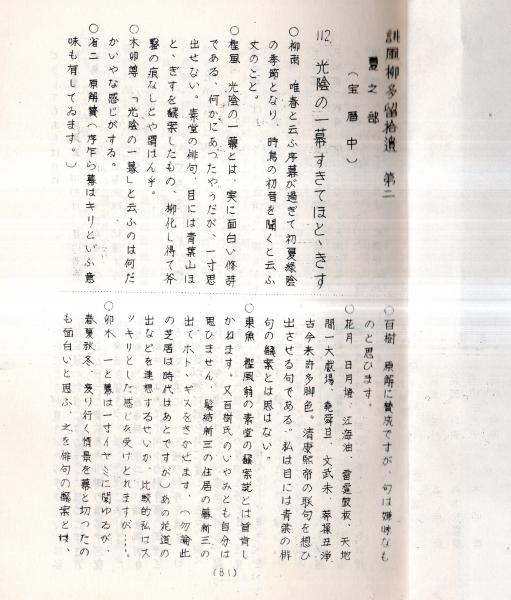 誹風柳多留拾遺　第二
夏之部
（宝暦中）
112. 光陰の一幕すきてほとゝきす
○柳雨　唯春と云ふ序幕が過ぎて初夏緑陰
の季節となり、時鳥の初音を聞くと云ふ
丈のこと。
○樫風　光陰の一幕とは、実に面白い修辞
である、何かにあつたやうだが、一寸思
出せない。素堂の俳句、目には青葉山ほ
と、ぎすを飜案したもの、柳化し得て斧
鑿の痕なしとや謂はん乎。
○木卯尊　「光陰の一幕」と云ふのは何だ
かいやな感じがする。
○省二　原解賛（序乍ら幕はキリといふ意
味も有してゐます。）
○百樹　原解に賛成ですが、句は嫌味なも
のと思ひます。
○花月　日月燈、江海油、雷霆鼓板、天地
間一大戯場、堯舜旦、文武末、莽操丑浄
古今来許多脚色。清康熙帝の联句を想ひ
出させる句である。私は目には青葉の俳
句の飜案とは思はない。
○東魚　樫風翁の素堂の飜案説とは首肯し
かねます。又百樹氏のいやみとも自分は
思ひません。髪結新三の住居の幕新三の
出でホトヽギスをきかせます、（勿論此
の芝居は時代はあとですが）あの花道の
出などを連想するせいか、比較的私はス
ッキリとした感じを受けとれますが……。
○卯木　一と幕は一寸イヤミに聞ゆるが、
春夏秋冬、変り行く情景を幕と切つたの
も面白いと思ふ、之を俳句の飜案とは、
（81）